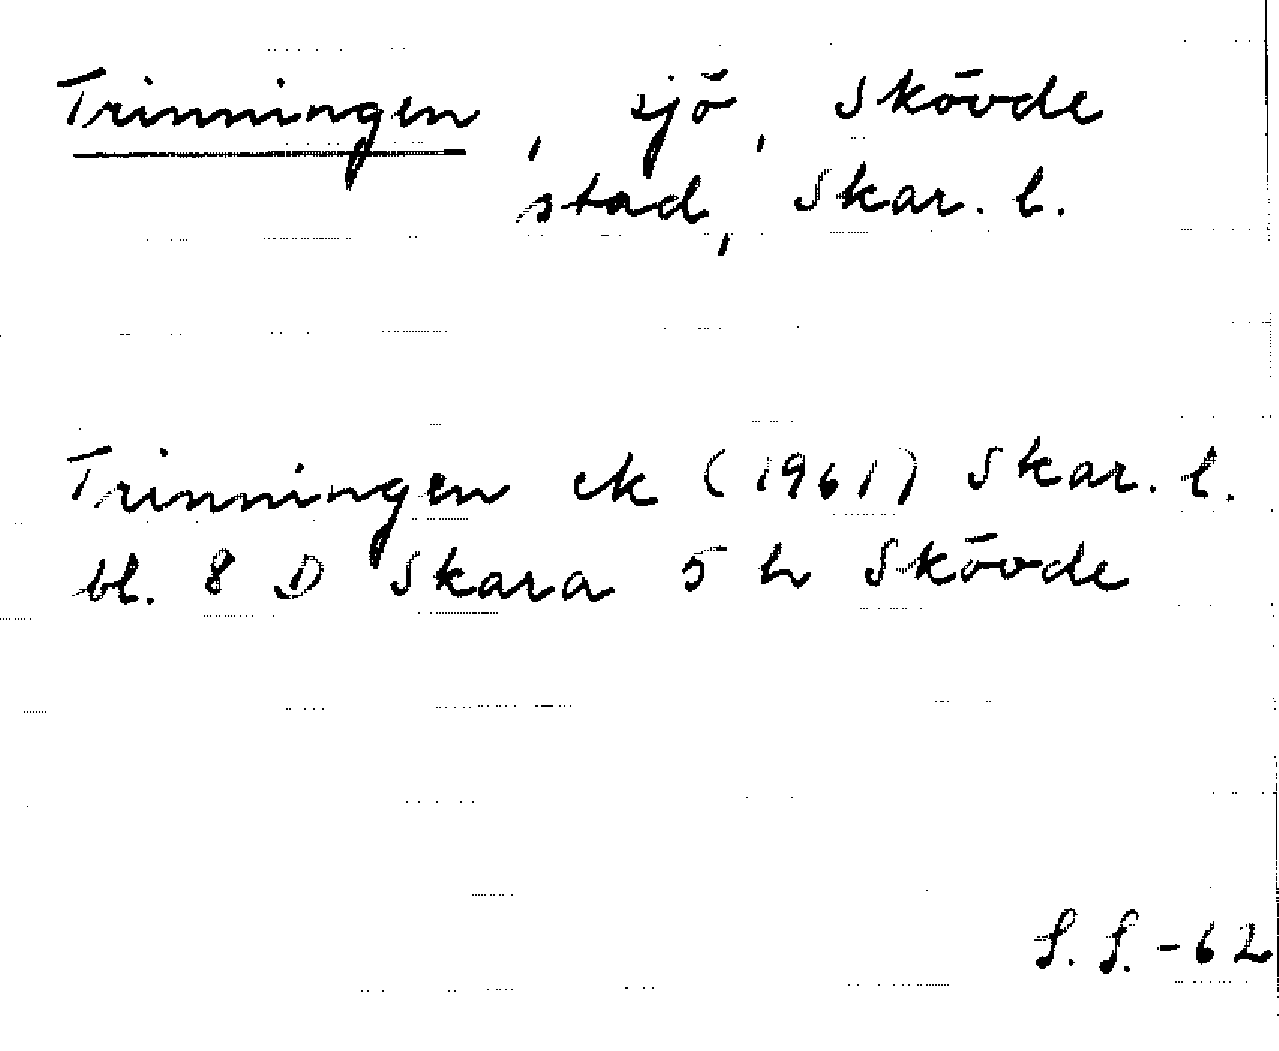 Trinningen, sjö, Skövde
stad, Skar. l.
Trinningen ek (1961) Skar. l.
bl. 8 D Skara 5 h Skövde
S. S. -62